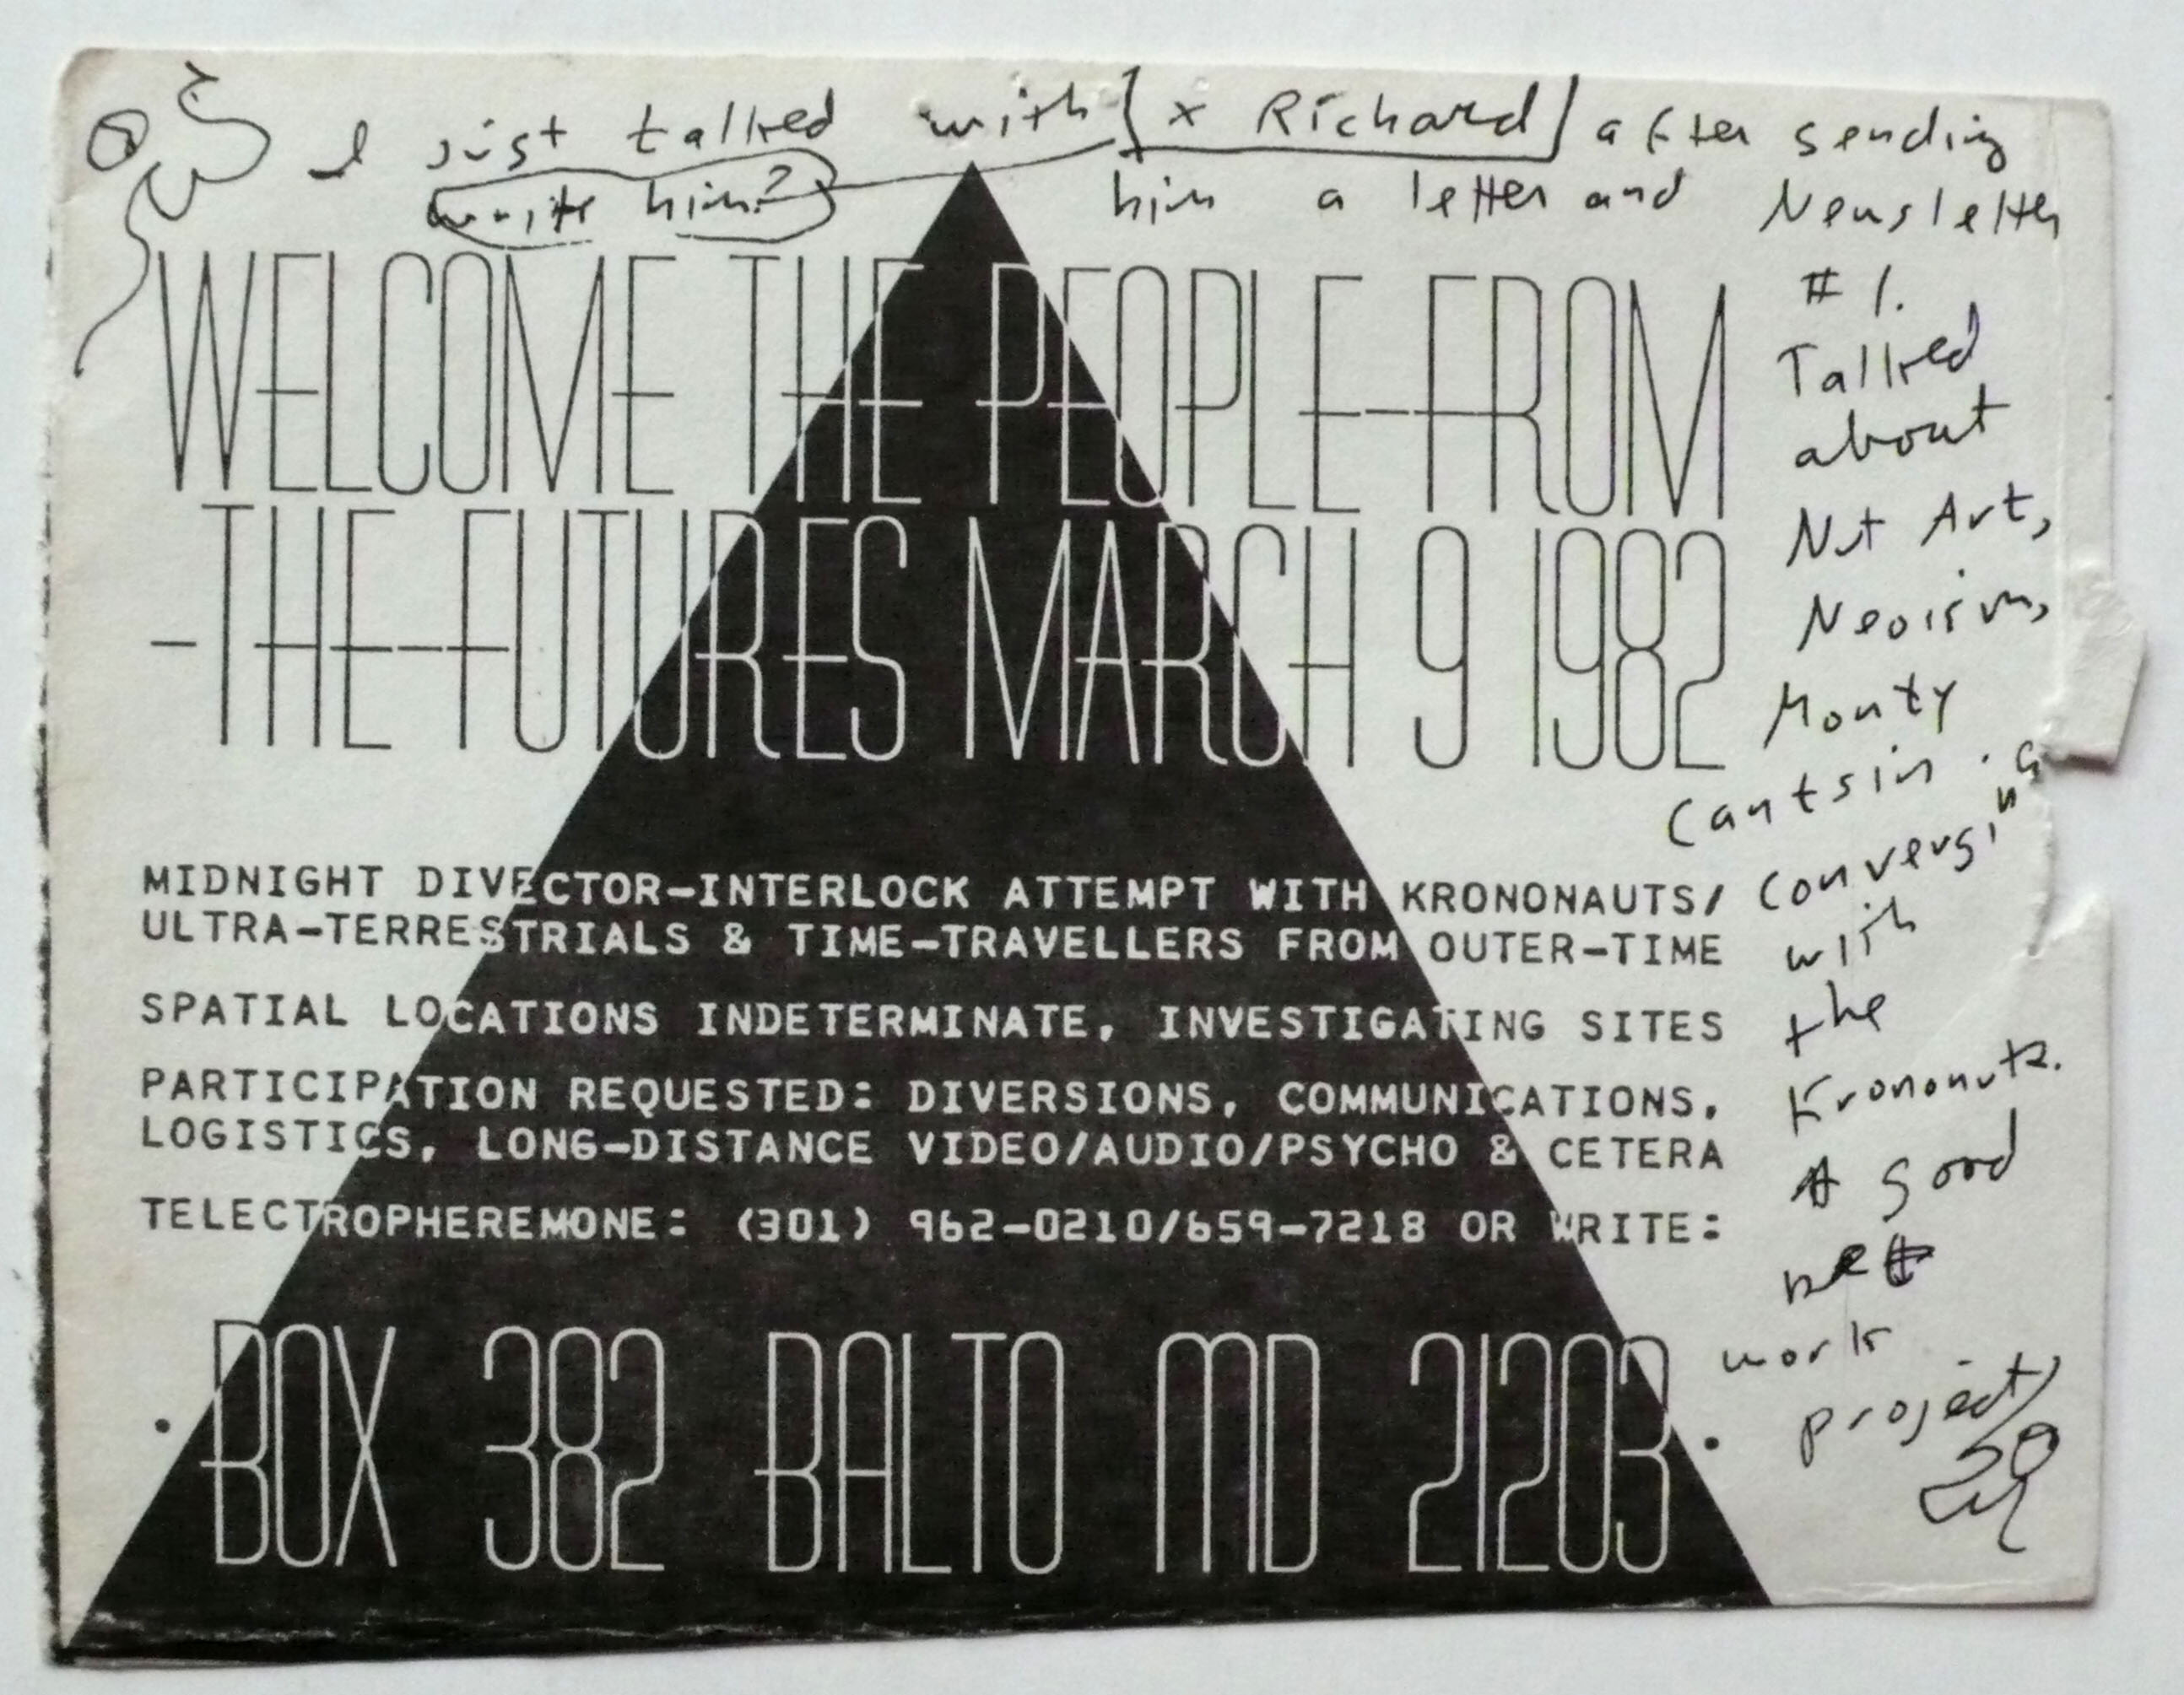 I just talked with [x Richard] after sending
write him?
him a letter and Newsletter
# 1.
Talked
about
Nut Art,
Neoism,
Monty
Cantsin.
Conversing
with
the
Krononuts.
A good
net
work
project
WELCOME THE PEOPLE-FROM
-THE-FUTURES MARCH 9 1982
MIDNIGHT DIVECTOR-INTERLOCK ATTEMPT WITH KRONONAUTS/
ULTRA-TERRESTRIALS & TIME-TRAVELLERS FROM OUTER-TIME
SPATIAL LOCATIONS INDETERMINATE, INVESTIGATING SITES
PARTICIPATION REQUESTED: DIVERSIONS, COMMUNICATIONS,
LOGISTICS, LONG-DISTANCE VIDEO/AUDIO/PSYCHO & CETERA
TELECTROPHEREMONE: (301) 962-0210/659-7218 OR WRITE:
• BOX 382 BALTO MD 21203 •